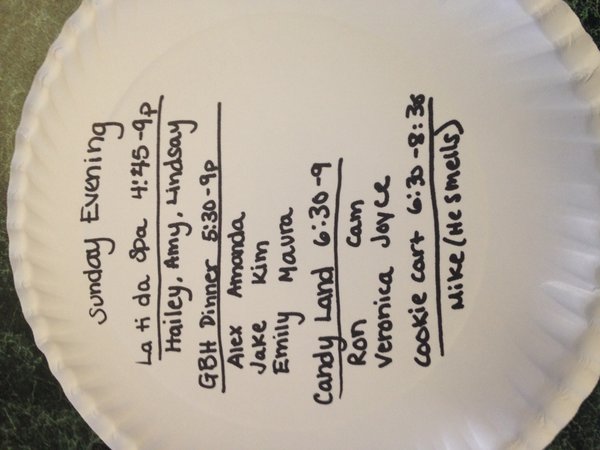 Sunday Evening
La ti da Spa 4:45-9p
Hailey, Amy, Lindsay
GBH Dinner 5:30-9p
Alex Amanda
Jake Kim
Emily Maura
Candy Land 6:30-9
Ron Cam
Veronica Joyce
Cookie Cart 6:30-8:30
Mike (He smells)